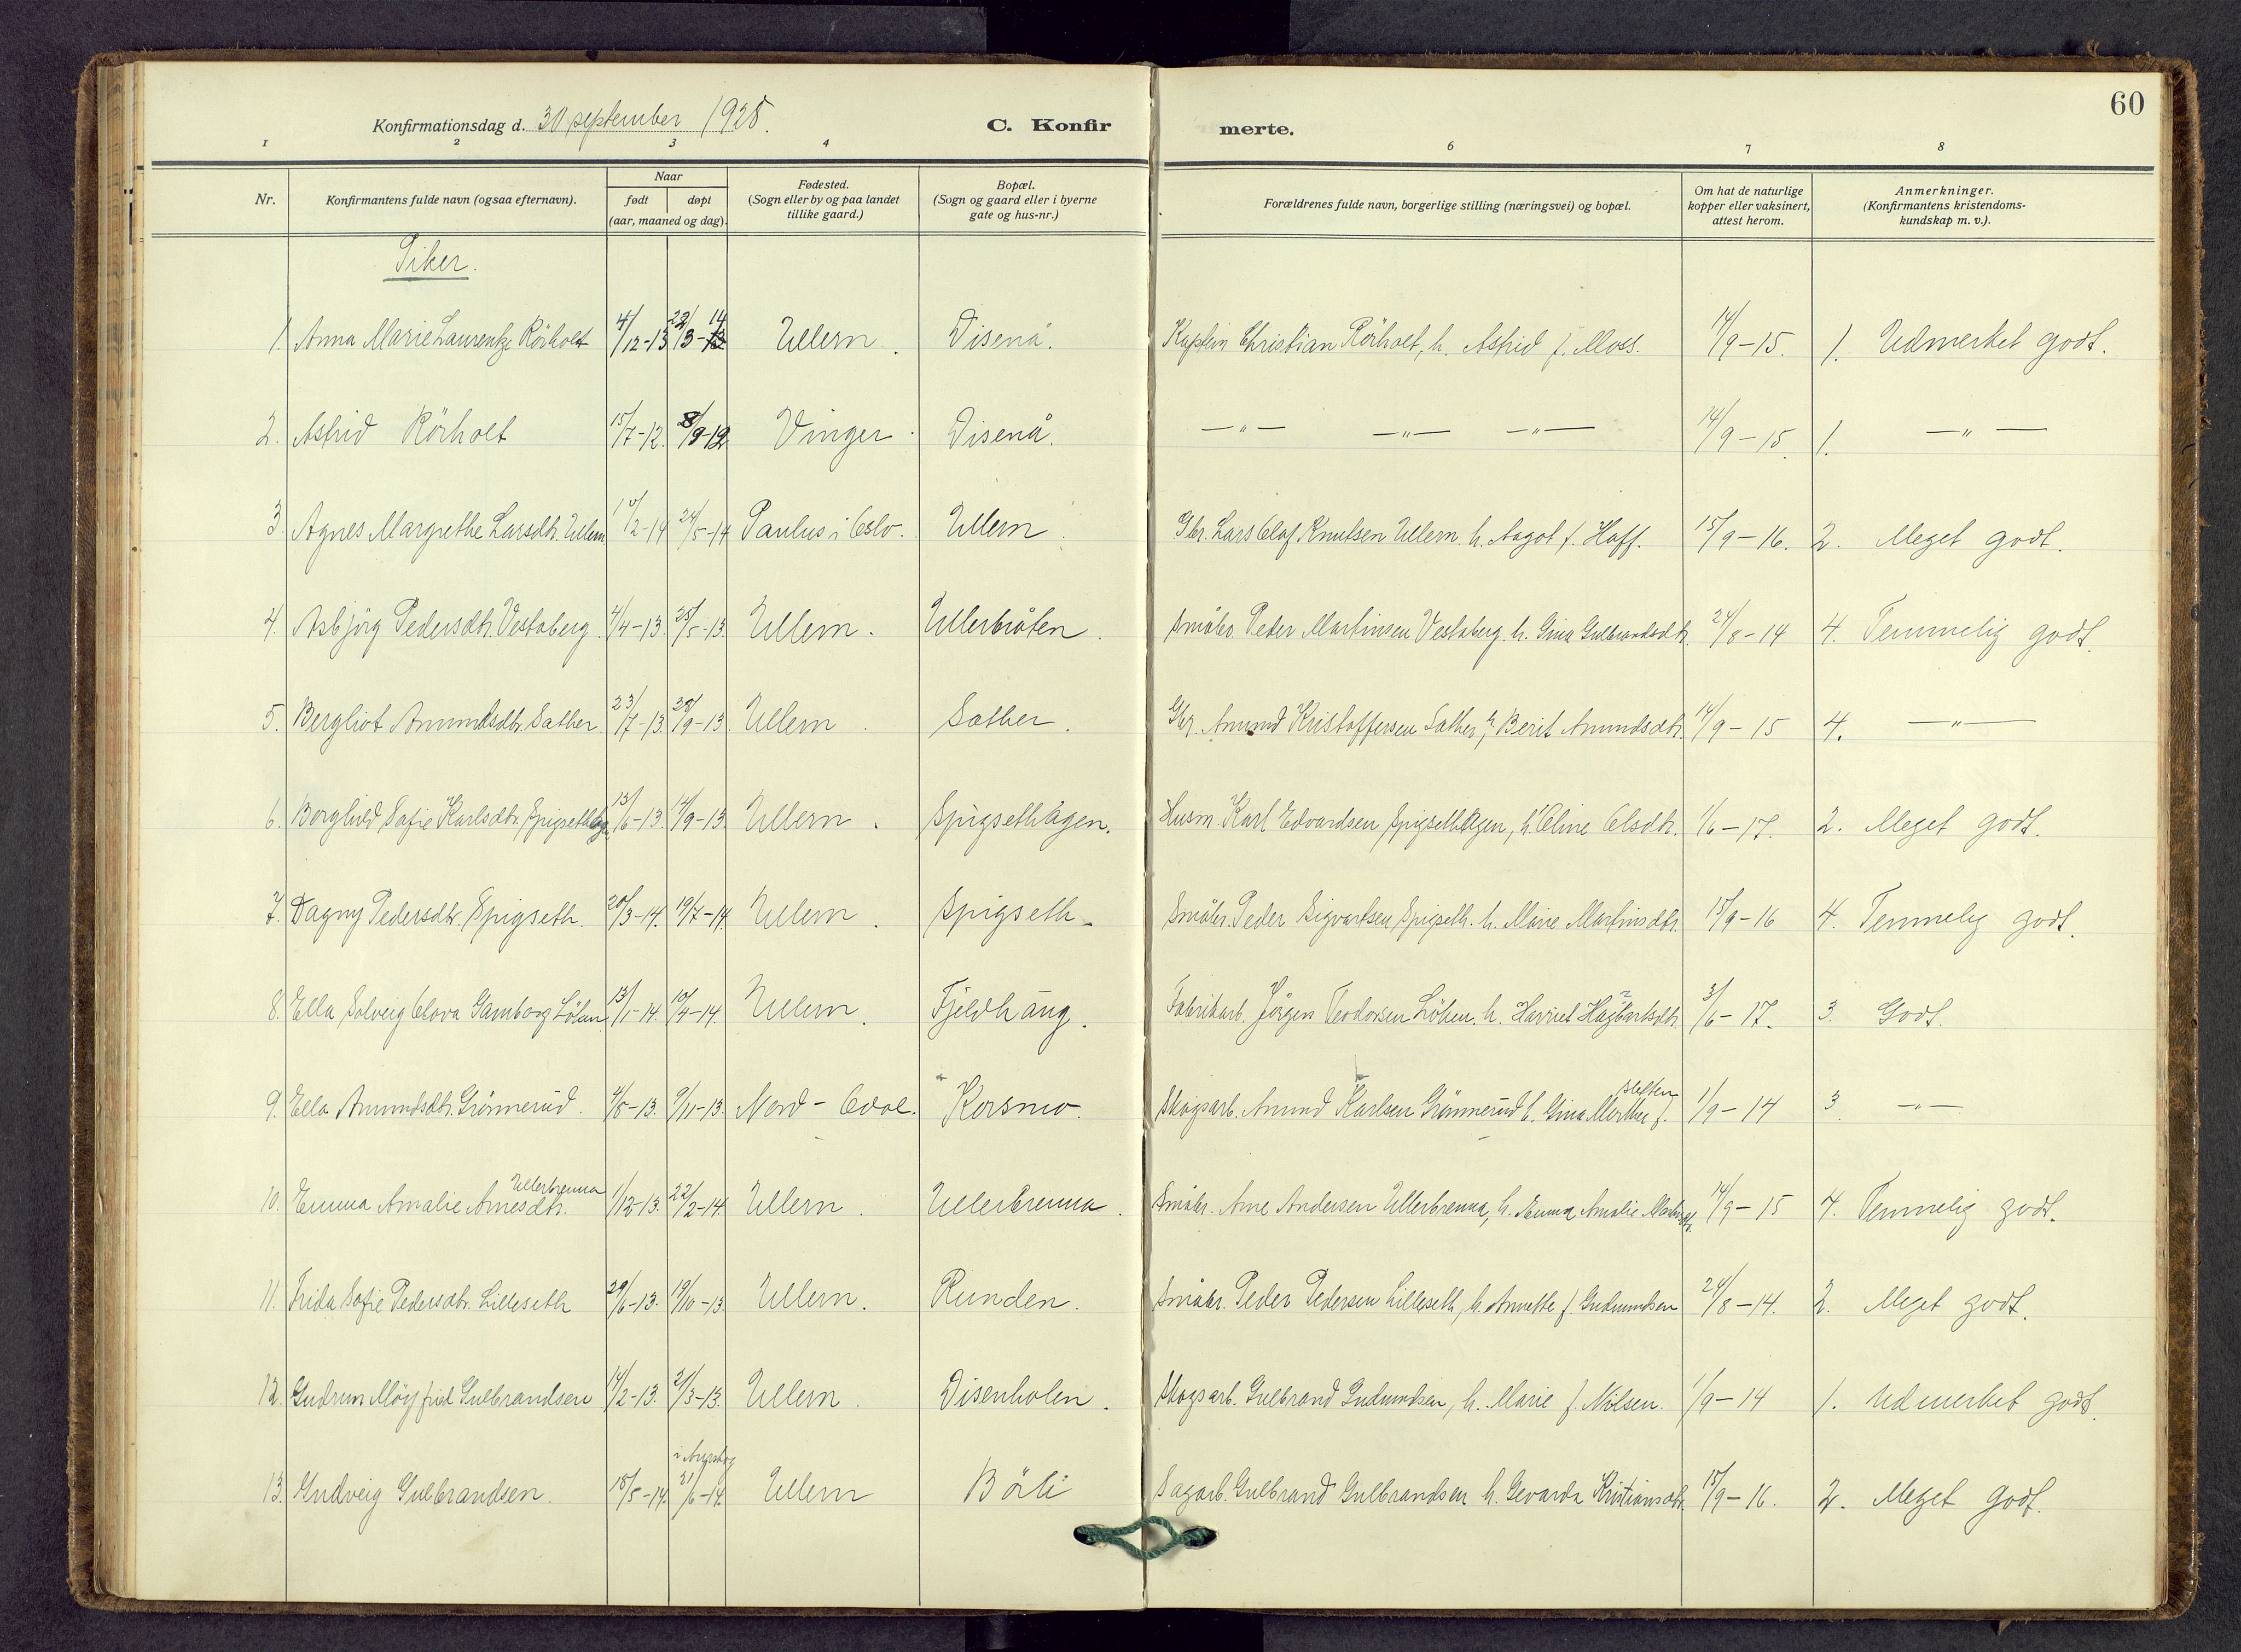 60
Konfirmationsdag d. 30 september 1928.
C. Konfirmerte.
1 2 3 4 6 7 8
Nr.
Konfirmantens fulde navn (ogsaa efternavn).
Naar
født døpt
(aar, maaned og dag).
Fødested.
(Sogn eller by og paa landet
tillike gaard.)
Bopæl.
(Sogn og gaard eller i byerne
gate og hus-nr.)
Forældrenes fulde navn, borgerlige stilling (næringsvei) og bopæl.
Om hat de naturlige
kopper eller vaksinert,
attest herom.
Anmerkninger.
(Konfirmantens kristendoms-
kundskap m. v.).
Piker.
1. Anna Marie Laurentze Rörholt 4/12-13 22/3-14 Ullern. Disenå. Kaptein Christian Rörholt, h. Astrid f. Moss. 14/9-15. 1. Udmerket godt.
2. Astrid Rörholt 15/7-12. 8/9-12 Vinger. Disenå. —„— —„— —„— 14/9-15. 1. —„—
3. Agnes Margrethe Larsdtr. Ullern 10/2-14 24/5-14 Paulus i Oslo. Ullern. Gbr. Lars Olaf Knutsen Ullern. h. Aagot f. Hoff. 15/9-16. 2. Meget godt.
4. Asbjörg Pedersdtr. Vestaberg 4/4-13. 25/5-13. Ullern. Ullerbråten. Småbr. Peder Martinsen Vestaberg. h. Gina Gulbrandsdtr. 24/8-14 4. Temmelig godt.
5. Bergliot Amundsdtr. Sather. 23/7-13. 28/9-13. Ullern. Sather. Gbr. Amund Kristoffersen Sather, h. Berit Amundsdtr. 14/9-15 4. —„—
6. Borghild Sofie Karlsdtr. Spigsethagen 13/6-13. 14/9-13. Ullern. Spigsethagen. Husm. Karl Edvardsen Spigsethagen, h. Oline Olsdtr. 1/6-17. 2. Meget godt.
7. Dagny Pedersdtr. Spigseth. 20/3-14. 19/7-14. Ullern. Spigseth. Småbr. Peder Sigvartsen Spigseth. h. Marie Martinsdtr. 15/9-16 4. Temmelig godt.
8. Ella Solveig Olova Gamborg Löken 13/1-14. 10/4-14. Ullern. Fjeldhaug. Fabrikarb. Jörgen Teodorsen Löken. h. Harriet Hagbartsdtr. 3/6-17. 3. Godt.
9. Ella Amundsdtr. Grönnerud. 4/8-13. 9/11-13. Nord-Odal. Korsmo. Skogsarb. Amund Karlsen Grönnerud h. Gina Marthea f. Sletten 1/9-14 3. —„—
10. Emma Amalie Arnesdtr. Ullerbrenna 1/12-13. 22/2-14. Ullern. Ullerbrenna. Småbr. Arne Andersen Ullerbrenna, h. Emma Amalie Martinsdtr. 14/9-15 4. Temmelig godt.
11. Frida Sofie Pedersdtr. Lilleseth 29/6-13. 19/10-13 Ullern. Runden. Småbr. Peder Pedersen Lilleseth, h. Annette f. Gudmundsen 24/8-14. 2. Meget godt.
12. Gudrun Möyfrid Gulbrandsen 14/2-13. 21/3-13. Ullern. Disenholen. Skogsarb. Gulbrand Gudmundsen, h. Marie f. Nilsen. 1/9-14 1. Udmerket godt.
13. Gudveig Gulbrandsen. 18/5-14. 21/6-14. Ullern Böli Sagarb. Gulbrand Gulbrandsen h. Gevarda Kristiansdtr. 15/9-16. 2. Meget godt.